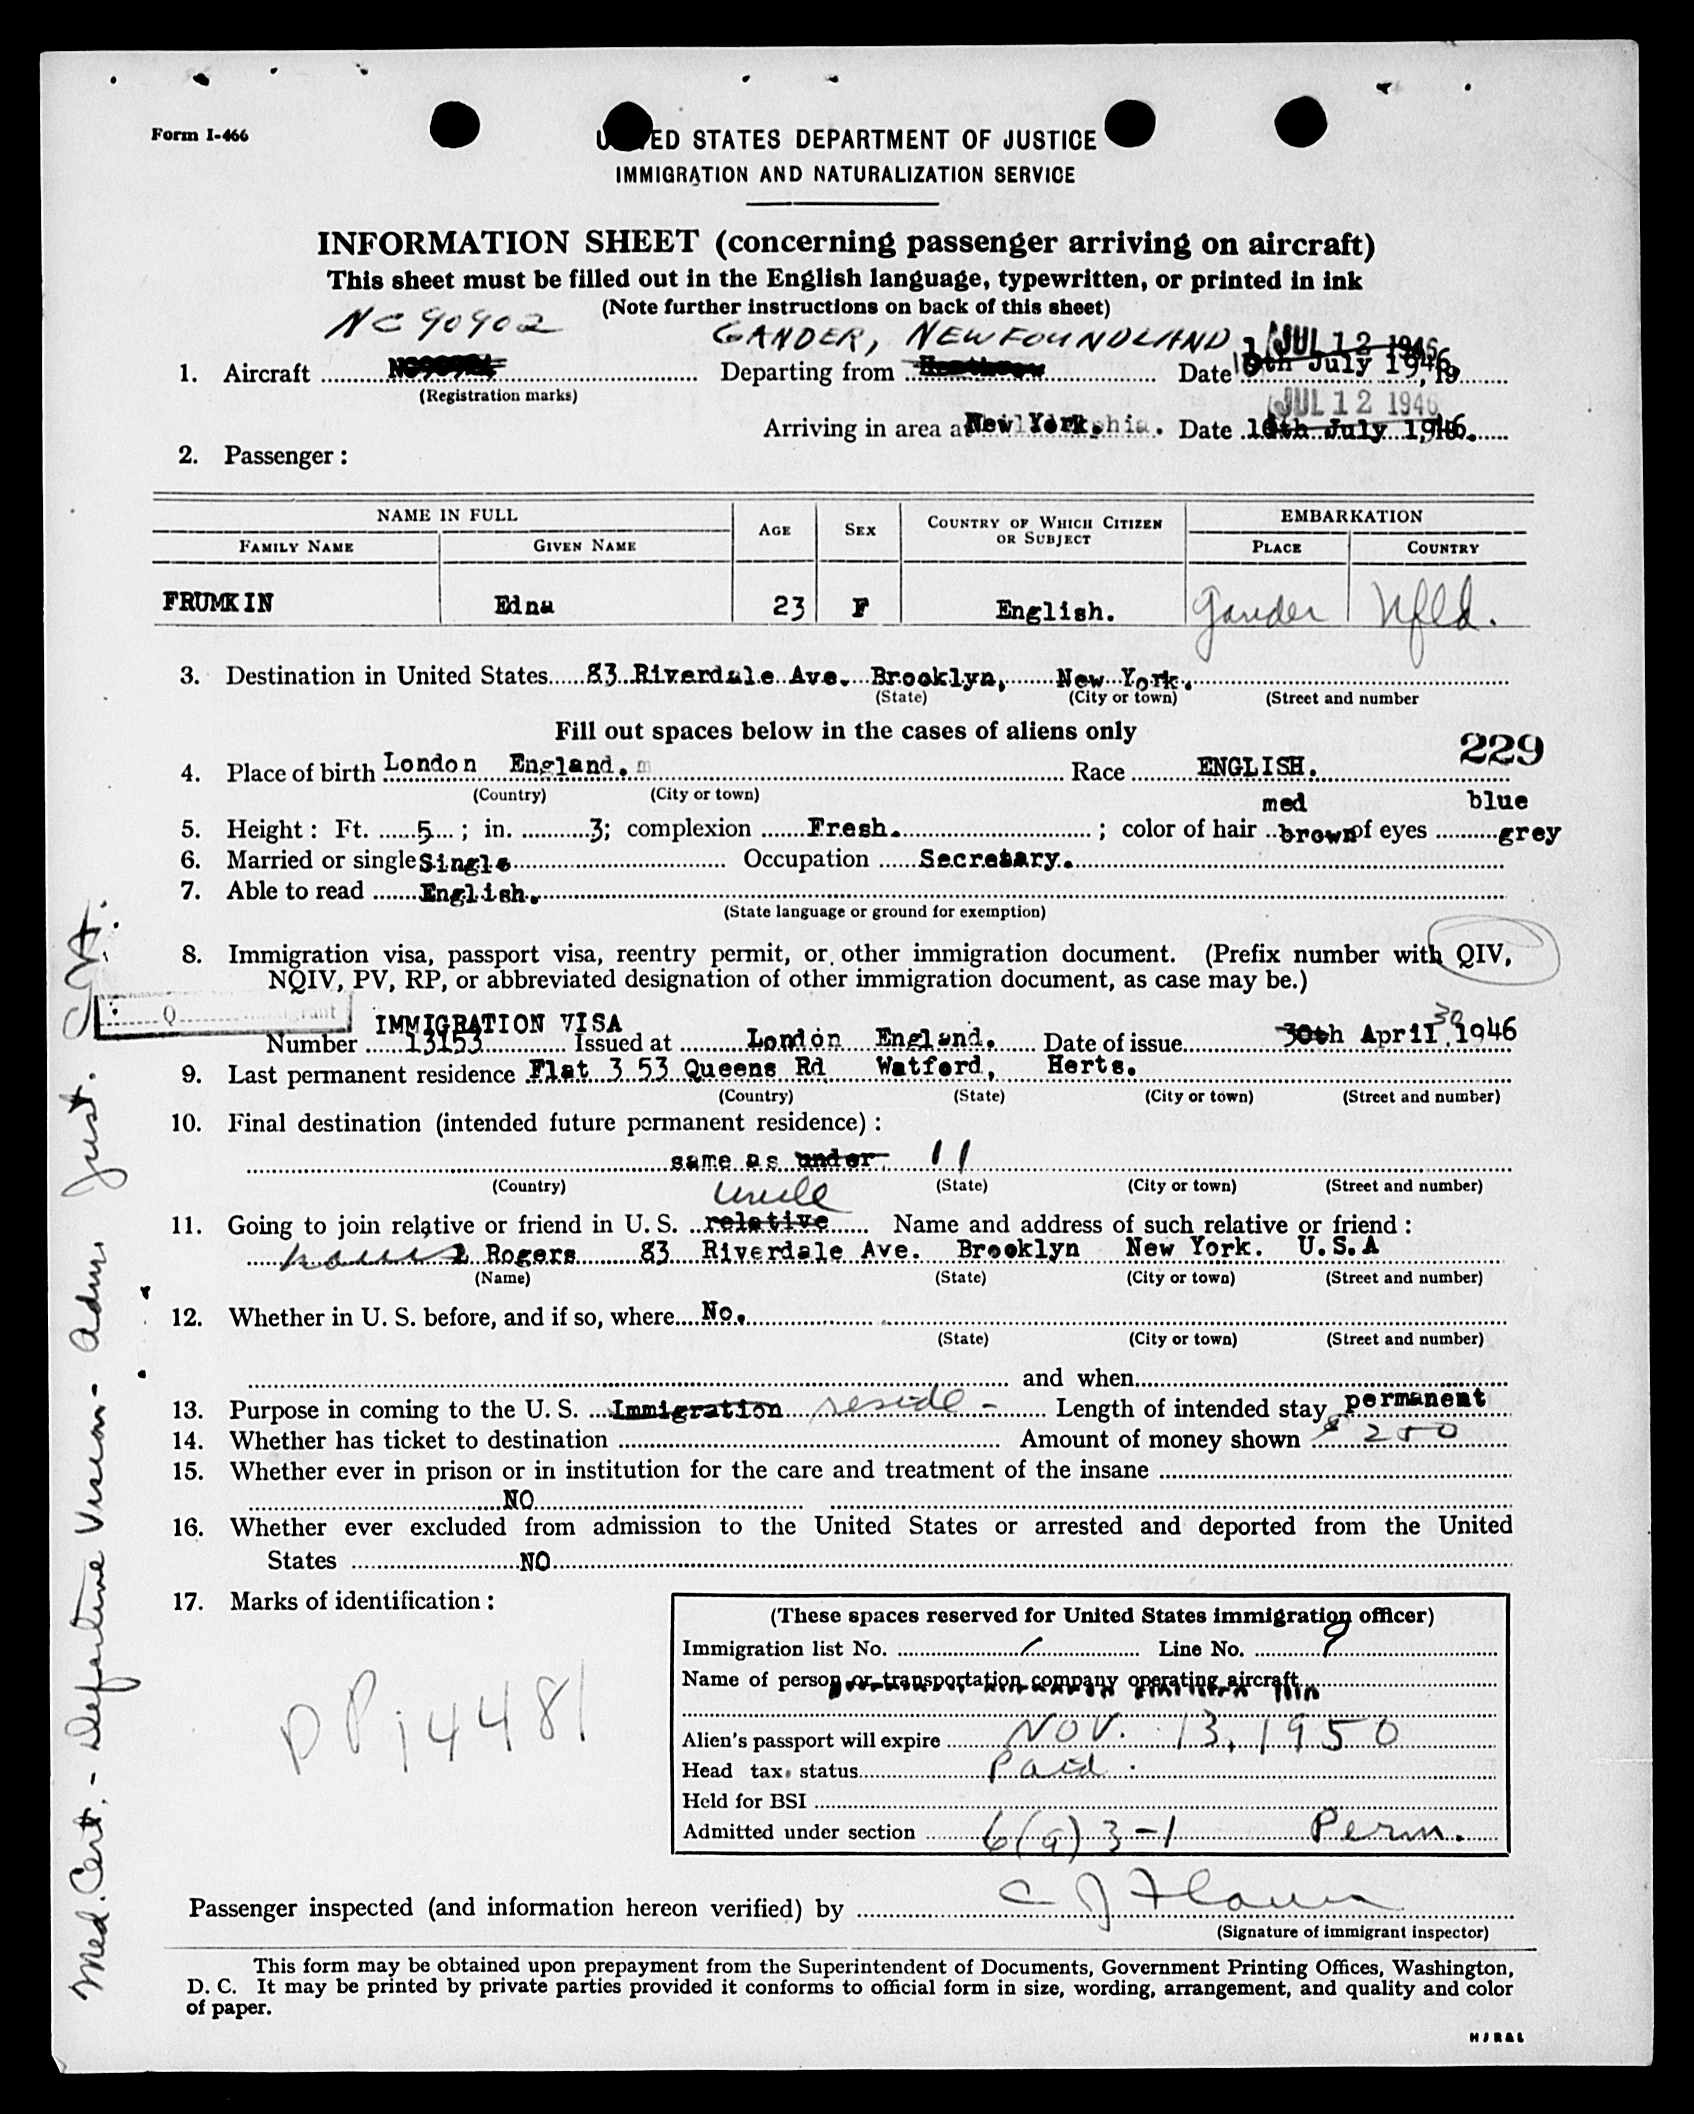 Form I-466
UNITED STATES DEPARTMENT OF JUSTICE
IMMIGRATION AND NATURALIZATION SERVICE
INFORMATION SHEET (concerning passenger arriving on aircraft)
This sheet must be filled out in the English language, typewritten, or printed in ink
(Note further instructions on back of this sheet)
NC90902 GANDER, NEWFOUNDLAND JUL 12 1946
1. Aircraft Departing from Heathrow Date July 1946, 19
(Registration marks)
JUL 12 1946
Arriving in area at New York. Date 10th July 1946.
2. Passenger:
NAME IN FULL AGE SEX COUNTRY OF WHICH CITIZEN OR SUBJECT EMBARKATION
FAMILY NAME GIVEN NAME PLACE COUNTRY
FRUMKIN Edna 23 F English. Gander Nfld.
3. Destination in United States 83 Riverdale Ave. Brooklyn, New York.
(State) (City or town) (Street and number
Fill out spaces below in the cases of aliens only
229
4. Place of birth London England. Race ENGLISH.
(Country) (City or town)
med blue
5. Height: Ft. 5; in. 3; complexion Fresh.; color of hair brown of eyes grey
6. Married or single Single Occupation Secretary.
7. Able to read English.
(State language or ground for exemption)
8. Immigration visa, passport visa, reentry permit, or other immigration document. (Prefix number with QIV,
NQIV, PV, RP, or abbreviated designation of other immigration document, as case may be.)
Q
IMMIGRATION VISA 30
Number 13153 Issued at London England. Date of issue 30th April 1946
9. Last permanent residence Flat 3 53 Queens Rd Watford, Herts.
(Country) (State) (City or town) (Street and number)
10. Final destination (intended future permanent residence):
same as under. 11
(Country) (State) (City or town) (Street and number)
uncle
11. Going to join relative or friend in U. S. relative Name and address of such relative or friend:
Rogers 83 Riverdale Ave. Brooklyn New York. U.S.A
(Name) (State) (City or town) (Street and number)
12. Whether in U. S. before, and if so, where No.
(State) (City or town) (Street and number)
and when
13. Purpose in coming to the U. S. Immigration reside - Length of intended stay permanent
14. Whether has ticket to destination Amount of money shown $ 250
15. Whether ever in prison or in institution for the care and treatment of the insane
NO
16. Whether ever excluded from admission to the United States or arrested and deported from the United
States NO
17. Marks of identification:
PP 14481
(These spaces reserved for United States immigration officer)
Immigration list No. 1 Line No. 9
Name of person or transportation company operating aircraft
Alien's passport will expire NOV. 13, 1950
Head tax status Paid
Held for BSI
Admitted under section 6(a)3-1 Perm.
Passenger inspected (and information hereon verified) by C J
(Signature of immigrant inspector)
This form may be obtained upon prepayment from the Superintendent of Documents, Government Printing Offices, Washington,
D. C. It may be printed by private parties provided it conforms to official form in size, wording, arrangement, and quality and color
of paper.
Med. Cert. - Defective Vision - Adm. Just.